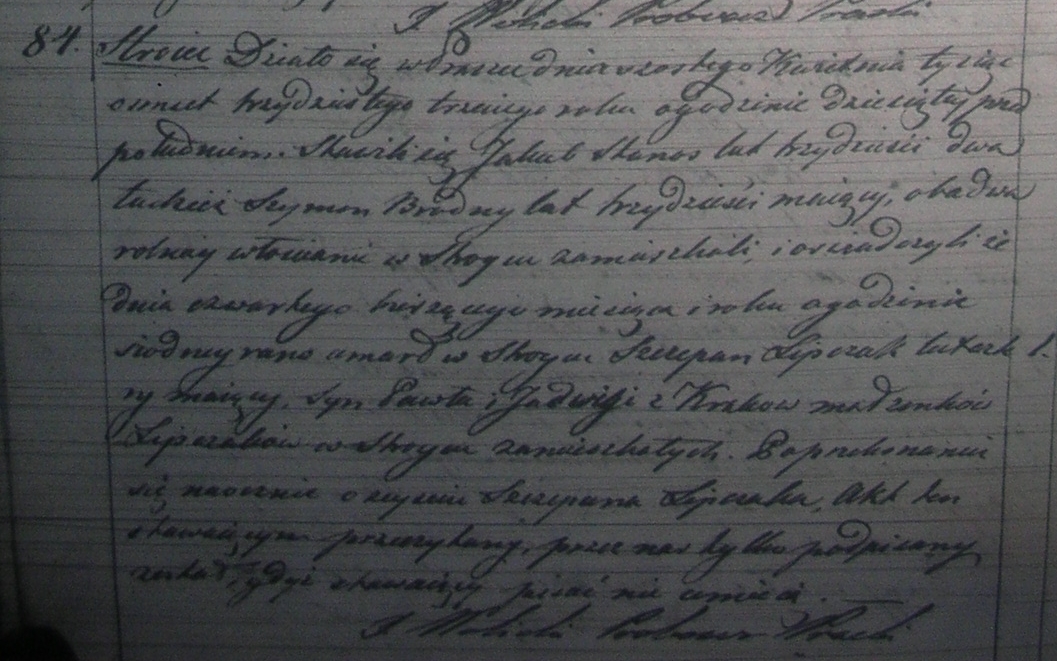 84. Stroie Działo się w Prasce dnia szostego Kwietnia tysiąc
osmset trzydziestego trzeciego roku o godzinie dziesiątey przed
południem. Stawili się Jakub Stanos lat trzydzieści dwa
tudzież Szymon Brodny lat trzydzieści maiący, obadwa
rolnicy włościanie w zamieszkali, i oświadczyli że
dnia czwartego bieżącego miesiąca i roku o godzinie
siodmey rano umarł w Szczepan Lipczak lat czte
ry maiący, syn Pawła i Jadwigi z Krakow małżonków
Lipczaków w zamieszkałych. Po przekonaniu
się naocznie o zeyściu Szczepana Lipczaka, Akt ten
stawaiącym przeczytany, przez nas tylko podpisany
został, gdyż stawaiący pisać nie umieią.
Proboszcz Praski